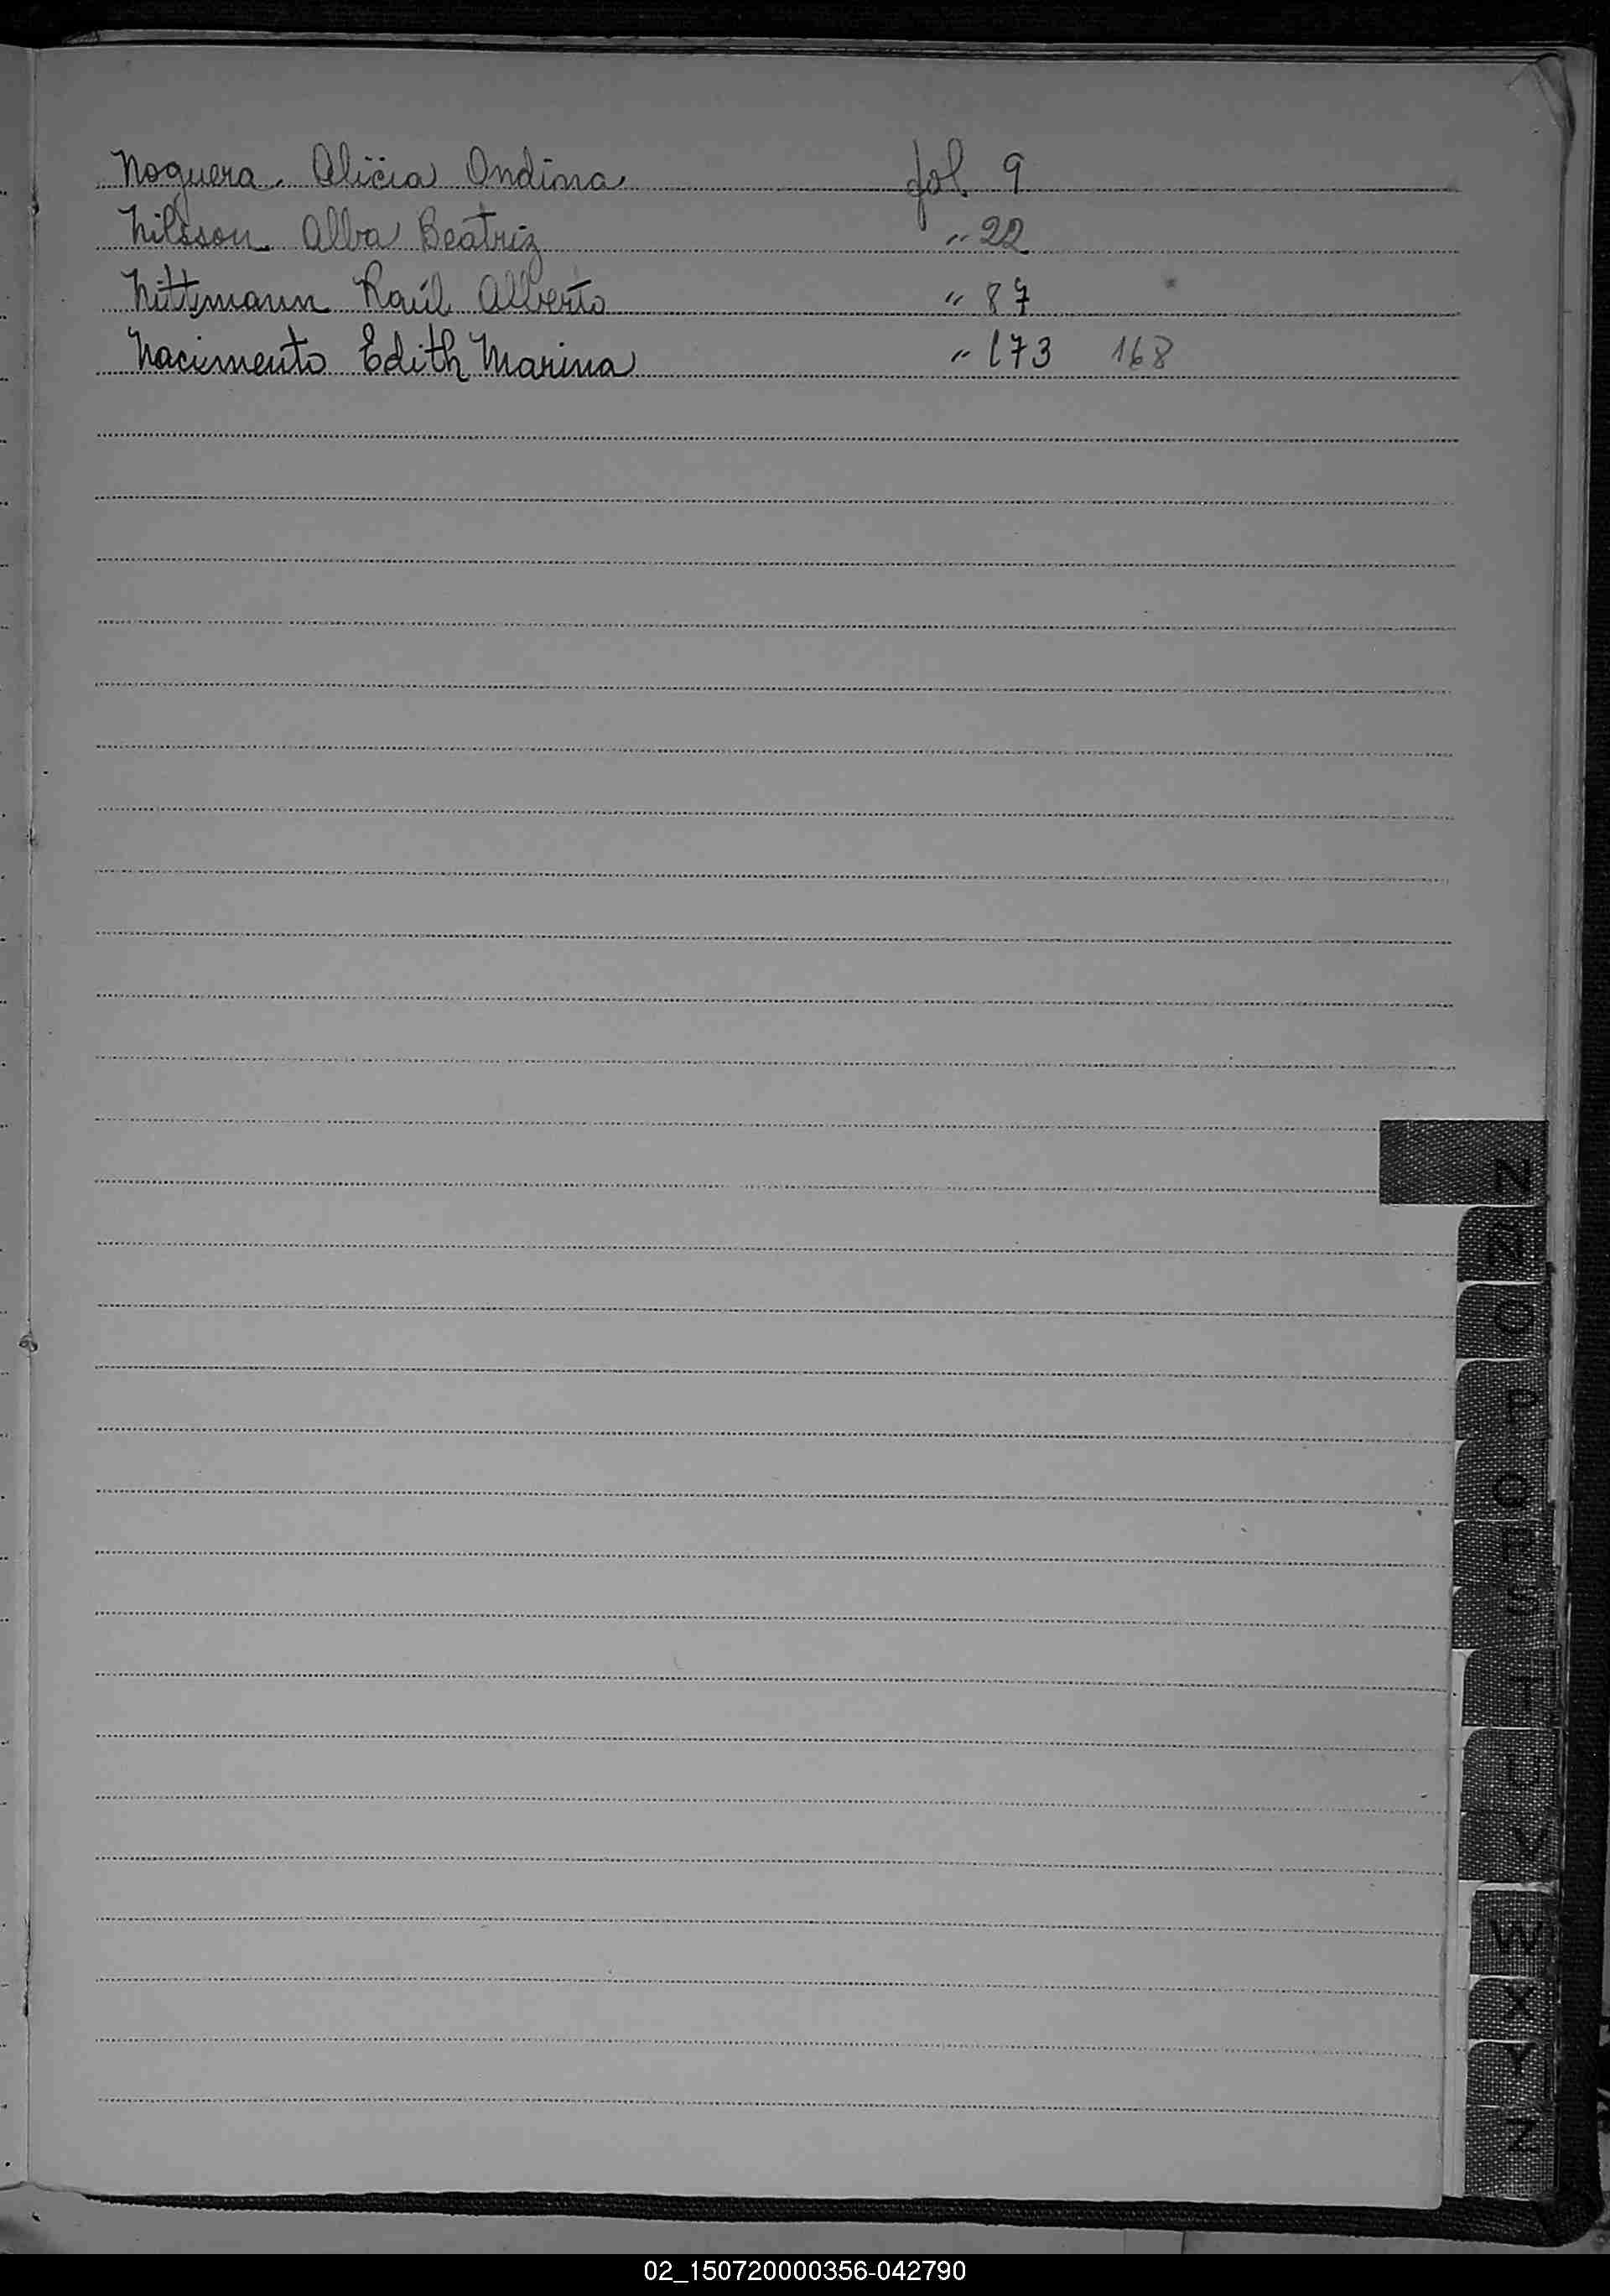 Noguera. Alicia Ondina fol. 9
Nilsson Alba Beatriz " 22
Nittmann Raúl Alberto " 87
Nacimento Edith Marina " 173 168
N
Ñ
O
P
Q
R
S
T
U
V
W
X
Y
Z
02_150720000356-042790